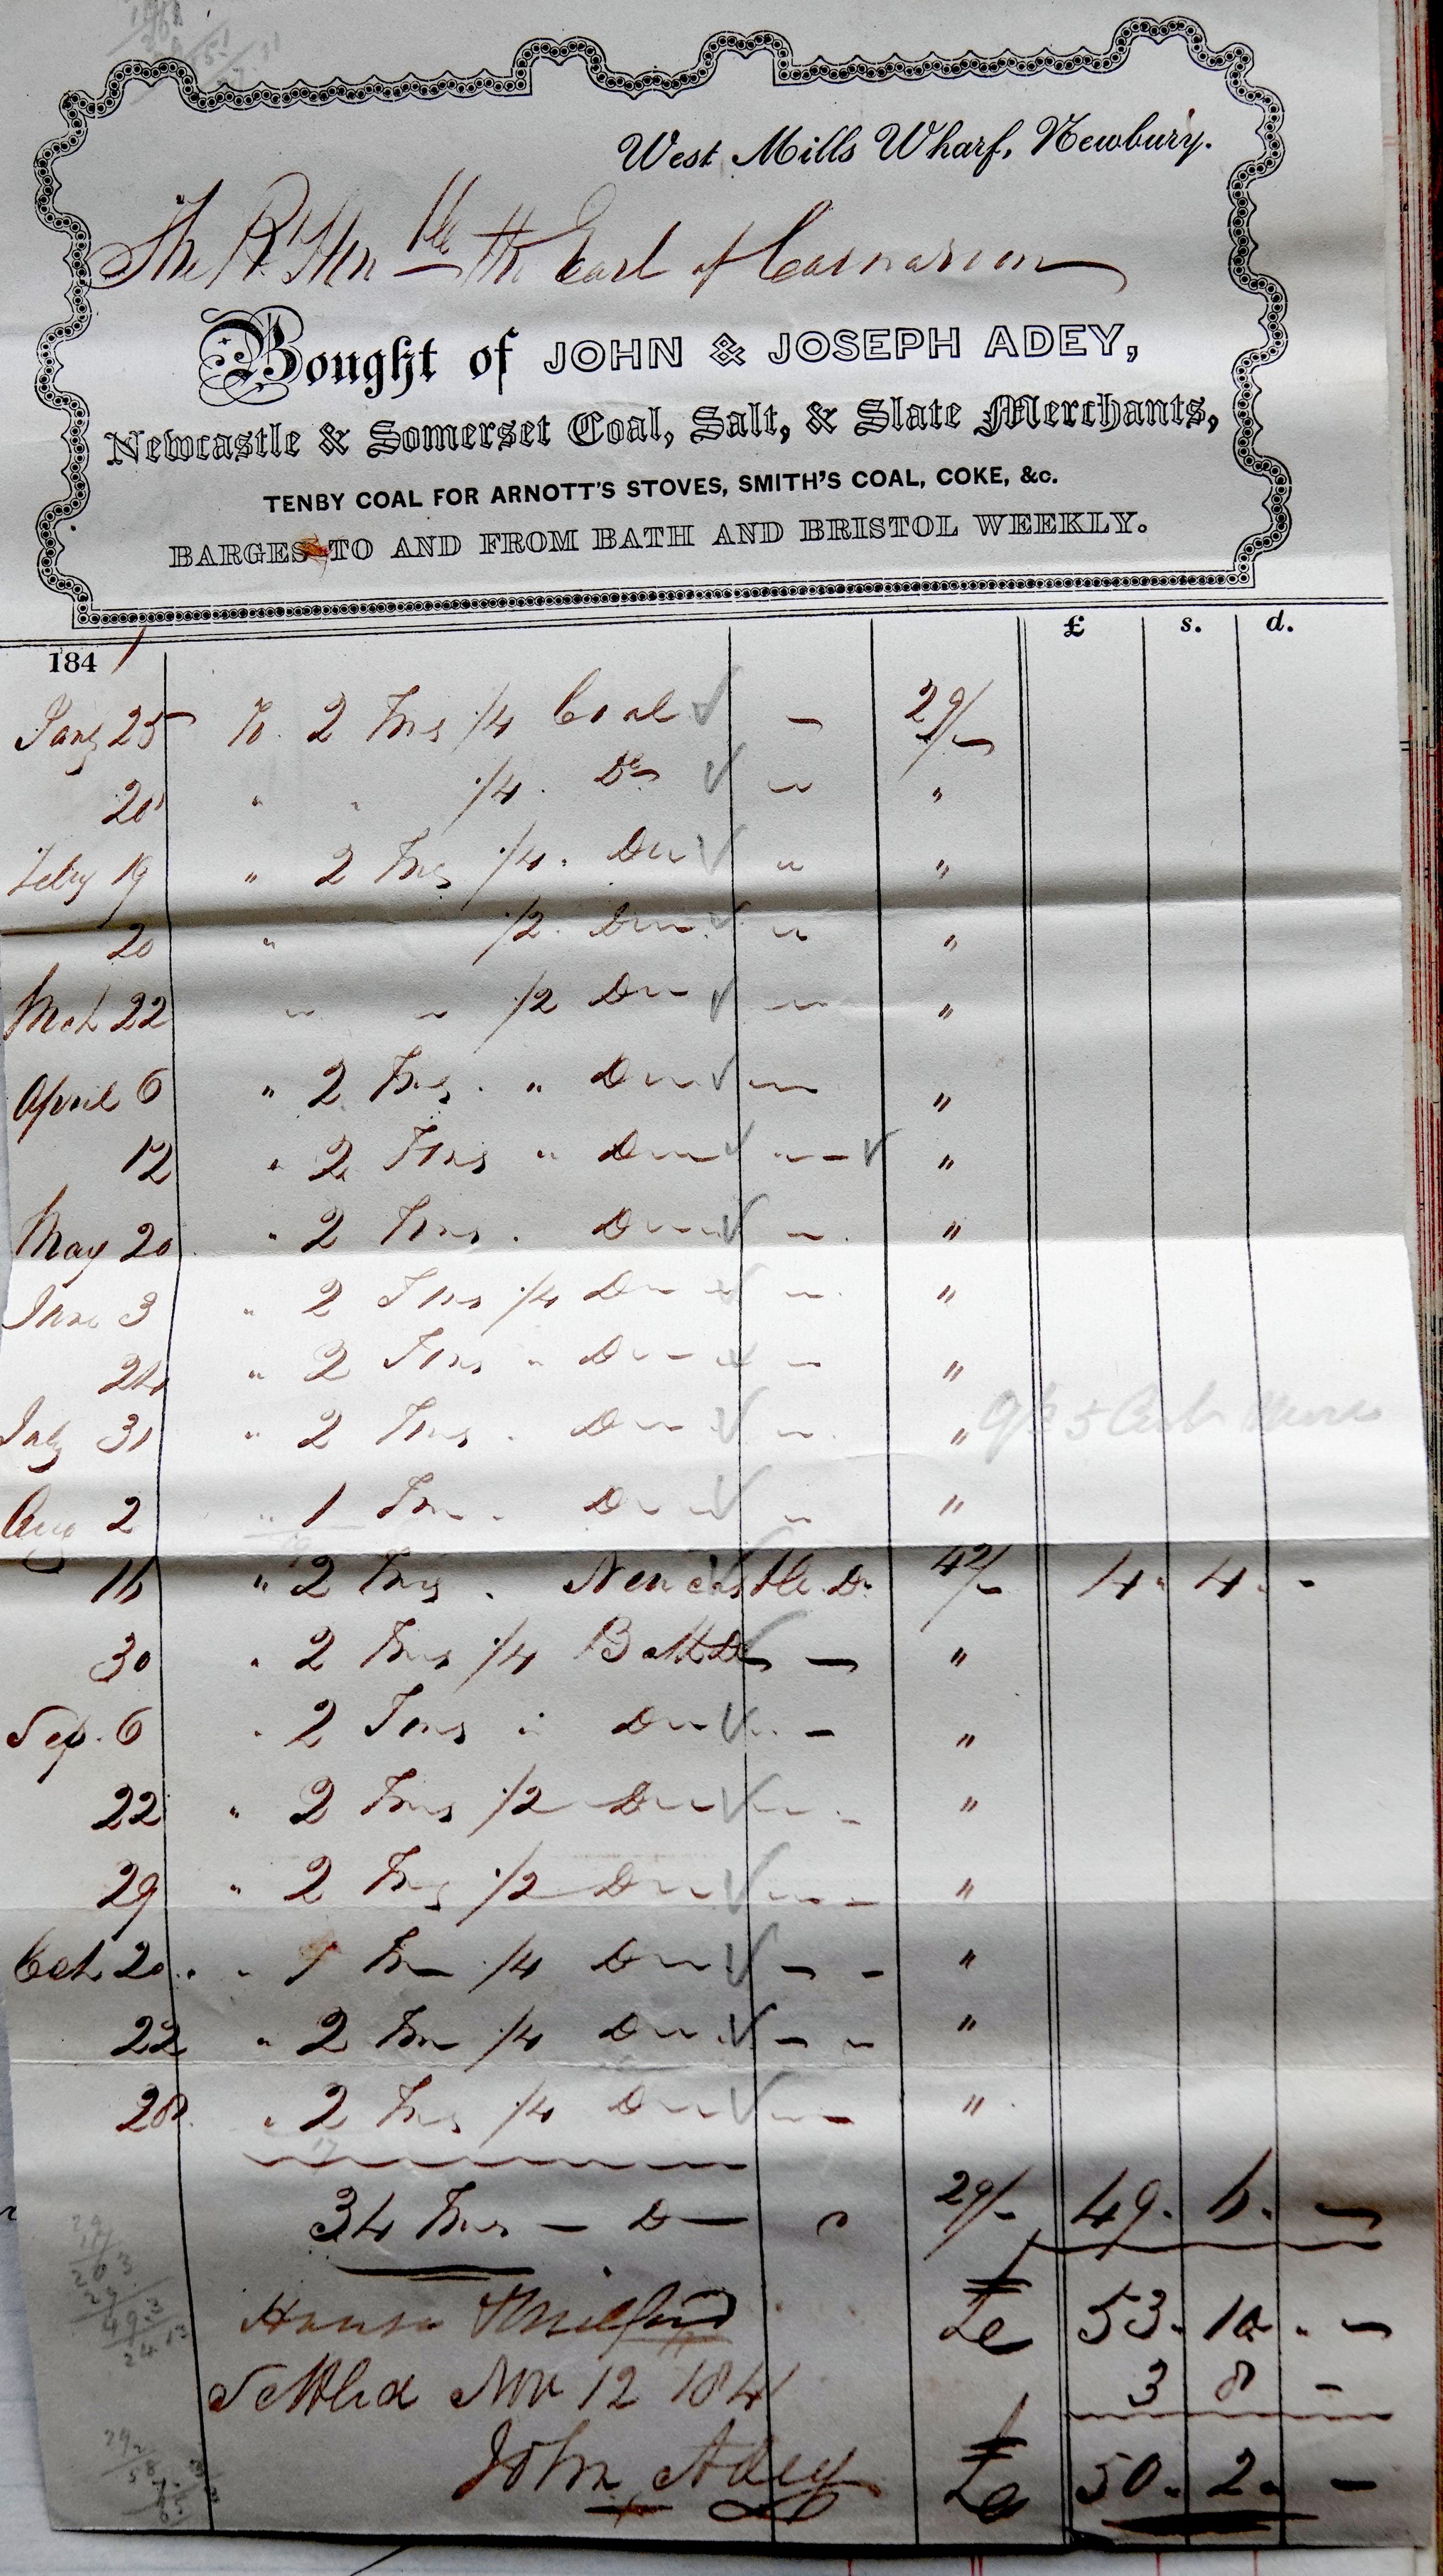 West Mills Wharf, Newbury.
The Rt Honble the Earl of Carnarvon
Bought of JOHN & JOSEPH ADEY,
Newcastle & Somerset Coal, Salt, & Slate Merchants,
TENBY COAL FOR ARNOTT'S STOVES, SMITH'S COAL, COKE, &c.
BARGES TO AND FROM BATH AND BRISTOL WEEKLY.
£ s. d.
1841
Jany 25 To 2 Tons 1/4 Coal — 29/-
" " 1/4 Do " "
Feby 19 " 2 Tons 1/4 Do " "
20 " 1/2 Do " "
Mch 22 " " 1/2 Do " "
April 6 " 2 Tons " Do " "
12 " 2 Tons " Do " "
May 20 " 2 Tons Do " "
June 3 " 2 Tons 1/4 Do " "
24 " 2 Tons " Do " "
July 31 " 2 Tons Do " "
Aug 2 " 1 Ton Do " "
16 " 2 Tons Newcastle Do 42/- 4 4 -
30 " 2 Tons 1/4 Bath Do — "
Sep. 6 " 2 Tons " Do " "
22 " 2 Tons 1/2 Do " "
29 " 2 Tons 1/2 Do " "
Oct 20 " 1 Ton 1/4 Do " "
22 " 2 Ton 1/4 Do " "
28 " 2 Tons 1/4 Do " "
34 Tons — Do — " 29/- 49. 6. —
£ 53. 10. —
3 8 -
Settled Nov 12 1841
John Adey £ 50. 2. —